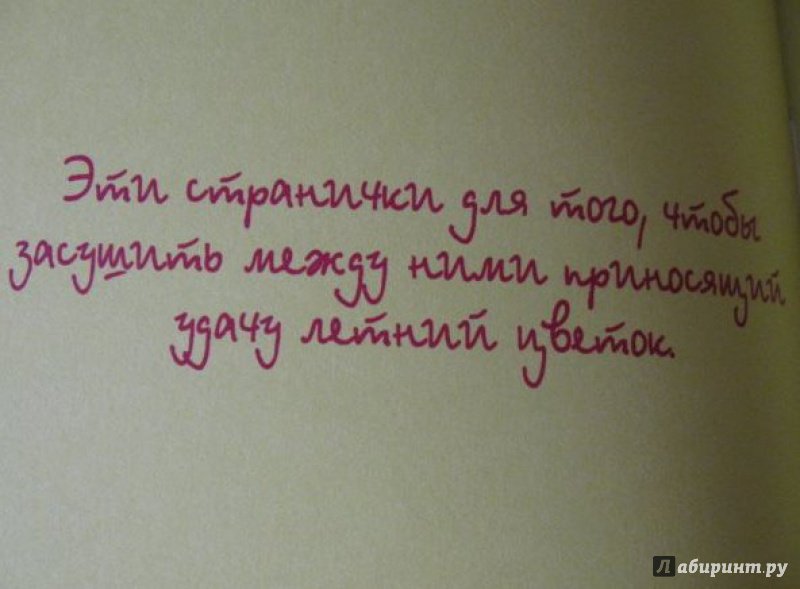 Эти странички для того, чтобы
засушить между ними приносящий
удачу летний цветок.
Лабиринт.ру